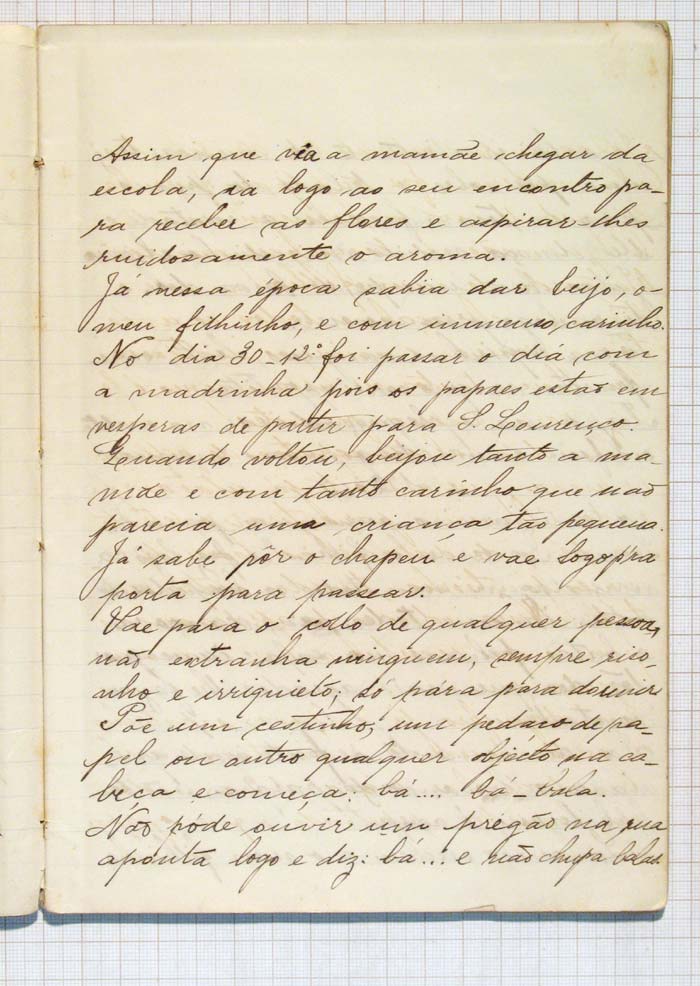 Assim que via a mamãe chegar da
escola, ia logo ao seu encontro pa-
ra receber as flores e aspirar-lhes
ruidosamente o aroma.
Já nessa época sabia dar beijo, o-
meu filhinho, e com immenso, carinho.
No dia 30-12º foi passar o dia com
a madrinha pois os papaes estão em
vesperas de partir para S. Lourenço.
Quando voltou, beijou tanto a ma-
mãe e com tanto carinho que não
parecia uma criança tão pequena.
Já sabe pôr o chapeu e vae logo p'ra
porta para passear.
Vae para o collo de qualquer pessoa,
não extranha ninguem, sempre riso-
nho e irriquieto; só pára para dormir
Põe um cestinho, um pedaço de pa-
pel ou outro qualquer objecto na ca-
beça e começa: bá.... bá-bala.
Não póde ouvir um pregão na rua
aponta logo e diz: bá... e não chupa balas.